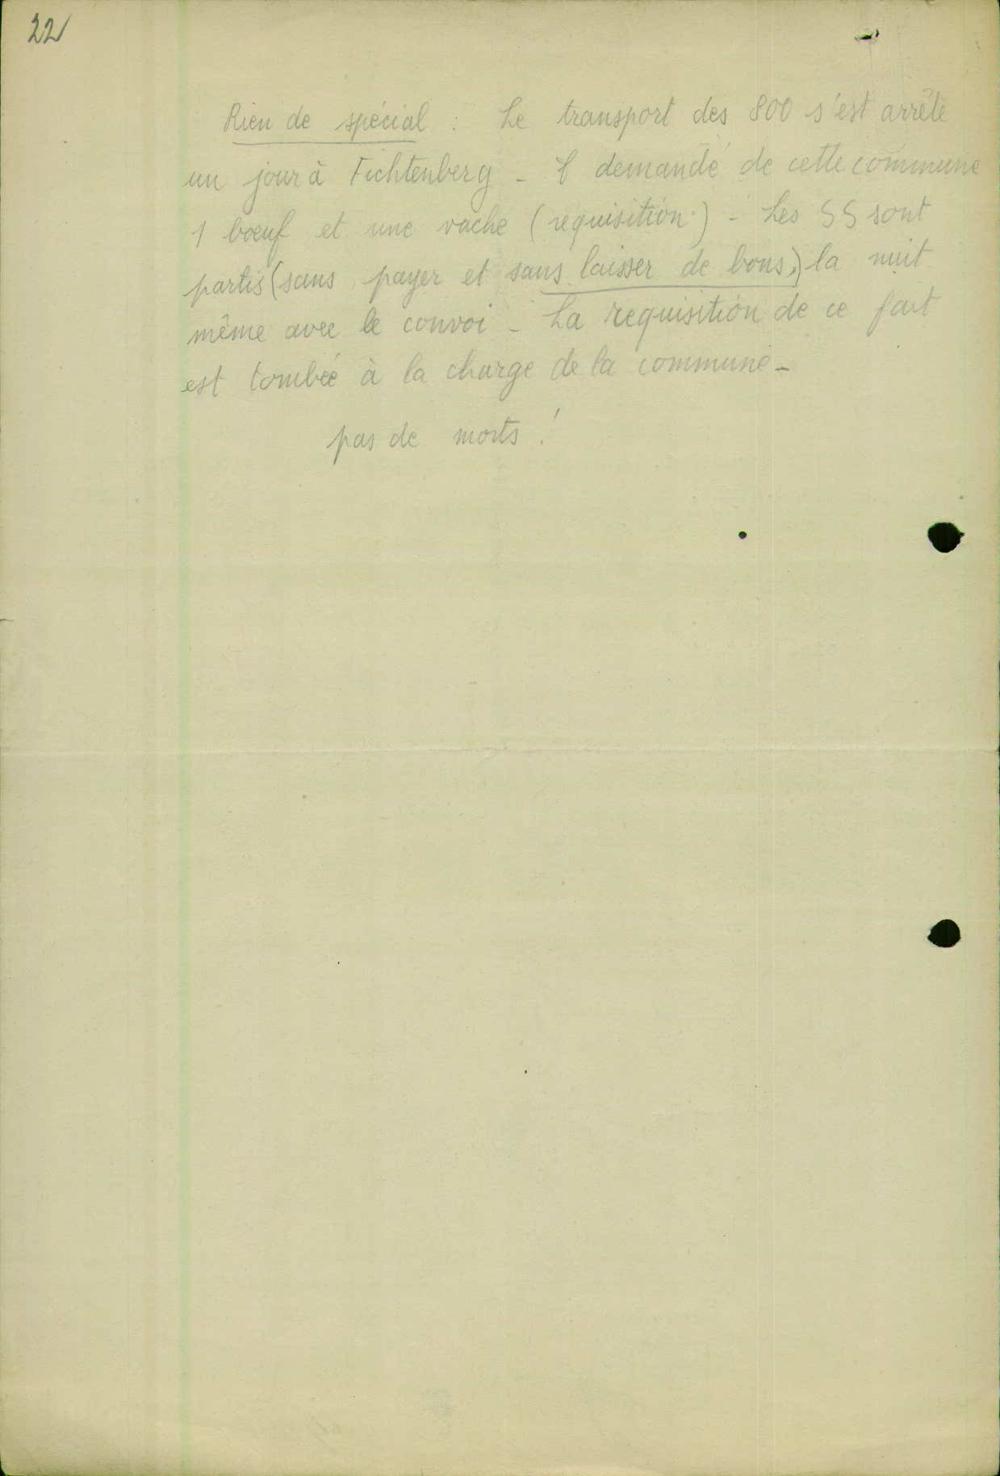 22
Rien de spécial : Le transport des 800 s'est arrêté
un jour à Fichtenberg - demandé de cette commune
1 bœuf et une vache (requisition.) - Les SS sont
partis (sans payer et sans laisser de bons,) la nuit
même avec le convoi - La requisition de ce fait
est tombée à la charge de la commune -
pas de morts !